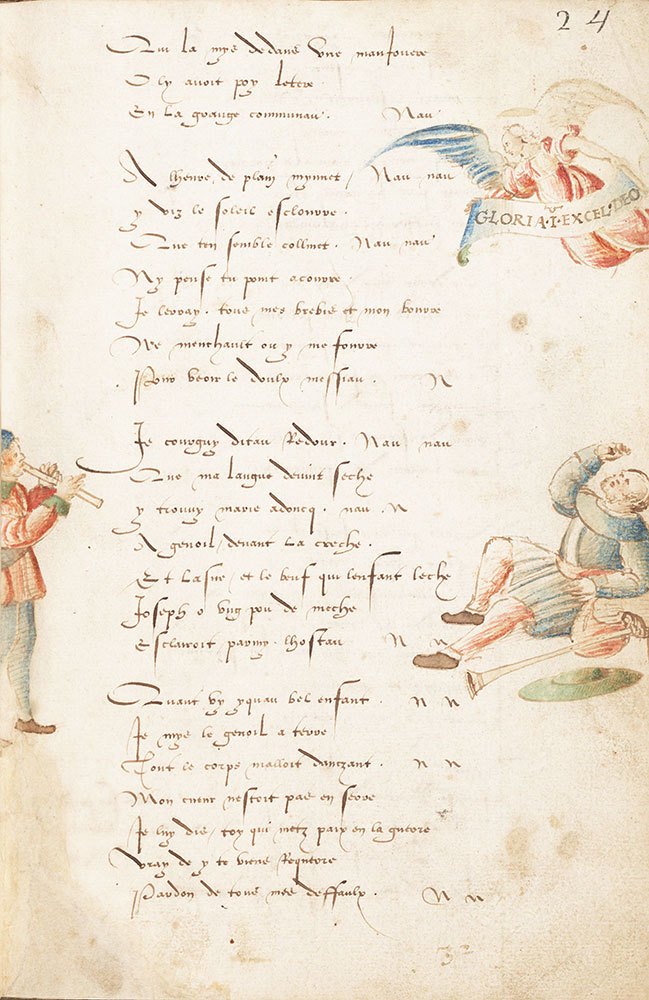 24
Qui la mys dedans une manjouere
O ly avoit poy letere
En la grange communau. Nau
A lheure de plain mynnet, Nau nau
GLORIA·I·EXCEL·DEO
y viz le soleil esclourre.
Que ten semble collinet. Nau nau
Ny pense tu point acourre.
Je lerray. tous mes brebis et mon bourre
Ne menchault ou y me fourre
Pour veoir le doulx messiau. N
Je courguy ditau Redour. Nau nau
Que ma langue devint seche
y trouvy marie adoncq. nau. N
A genoil, devant la creche.
Et lasne, et le beuf qui lenfant leche
Joseph o ung pou de meche
Esclairoit parmy. lhostau N N
Quant vy yquau bel enfant. N N
Je mys le genoil a terre
Tout le corps malloit danczant. N N
Mon cueur nestoit pas en serre
Je luy dis, toy qui metz paix en la guerre
vray de y te viens Requerre
Pardon de tous mes deffaulx. N N
32